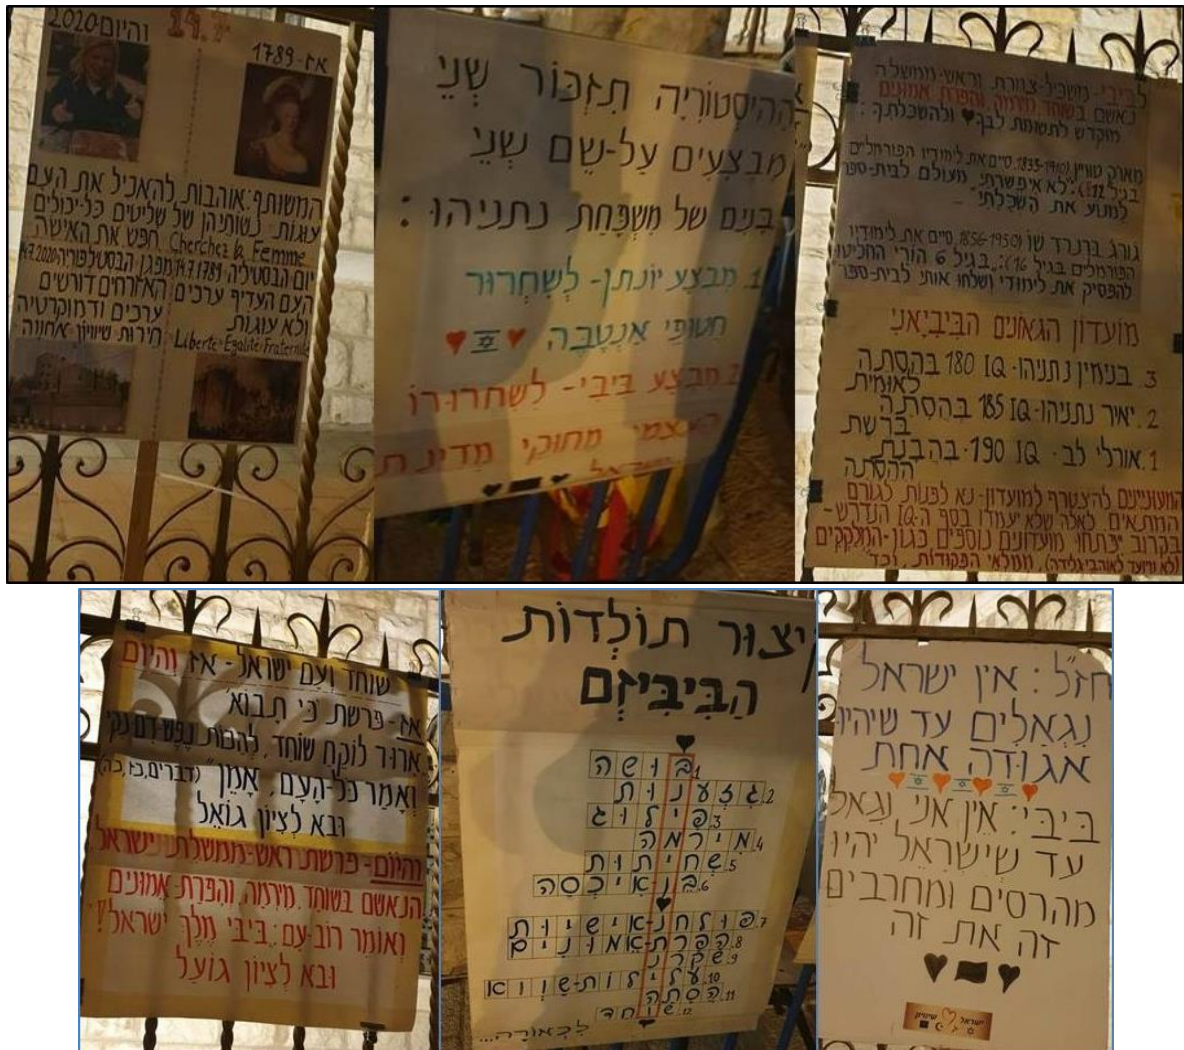 והיום-2020
14.7
אז-1789
המשותף: אוהבות להאכיל את העם
עוגות. נשותיהן של שליטים כל-יכולים
Cherchez la Femme חפש את האישה
יום הבסטיליה 14.7.1789
העם העדיף ערכים
ולא עוגות
Liberte-Egalite-Fraternite
האזרחים דורשים
ערכים ודמוקרטיה
חירות שיוויון אחווה
הַהִיסְטוֹרְיָה תִזְכּוֹר שְׁנֵי
מִבְצָעִים עַל-שֵׁם שְׁנֵי
בָּנִים של מִשְׁפַּחַת נתניהו:
1. מבצע יונתן- לְשִׁחְרוּר
חטופי אֶנְטֶבֶּה
2. מבצע ביבי- לְשִׁחְרוּרוֹ
העצמי מחוקי מדינת
ישראל
לביבי- משכיל-צוורת וראש-ממשלה
נאשם בשוחד מירמה והפרת אמונים
מוקדש לתשומת לבך ולהשכלתך:
מארק טוויין (1835-1910) סיים את לימודיו הפורמלים
בגיל 12: "לא איפשרתי מעולם לבית-ספר
למנוע את השכלתי"
גורג ברנרד שו (1856-1950) סיים את לימודיו
הפורמלים בגיל 16: "בגיל 6 הורי החליטו
להפסיק את לימודי ושלחו אותי לבית-ספר"
מועדון הגאונים הביביאני
3. בנימין נתניהו- 180 IQ בהסתה
לאומית
2. יאיר נתניהו- 185 IQ בהסתה
ברשת
1. אורלי לב- 190 IQ בהבנת
ההסתה
המעוניינים להצטרף למועדון- נא לפנות לגורם
המתאים. לאלה שלא יעמדו בסף ה-IQ הנדרש-
בקרוב יפתחו מועדונים נוספים כגון- המלקקים
(לא מיועד לאוהבי גלידה), ממלאי הפקודות, וכד'
שוחד ועם ישראל- אז והיום
אז- פרשת 'כי תבוא'
"ארור לוקח שוחד, להכות נפש דם נקי
ואמר כל-העם, אמן" (דברים, כז, כה)
ובא לציון גואל
והיום- פרשת ראש-ממשלת ישראל
הנאשם בשוחד מירמה והפרת אמונים
ואומר רוב-עם: ביבי מלך ישראל!
ובא לציון גועל
קיצור תולדות
הביביזם
1. בושה
2. גזענות
3. פילוג
4. מירמה
5. שחיתות
6. בנאיכסה
7. פולחן-אישיות
8. הפרת-אמונים
9. שקרן
10. עלילות-שווא
11. הסתה
12. שוחד
לכאורה...
חז"ל: אין ישראל
נגאלים עד שיהיו
אגודה אחת
ביבי: אין אני נגאל
עד שישראל יהיו
מהרסים ומחרבים
זה את זה
ישראל שיוויון